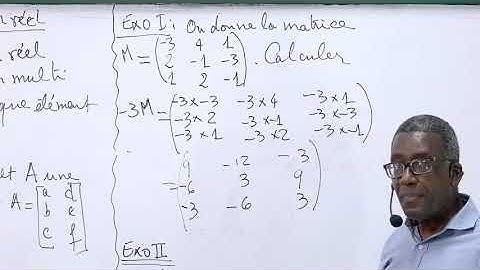 réel
réel
multi
que élément
et A une
A = [a d
b e
c f]
Exo I : On donne la matrice
M = (-3 4 1
2 -1 -3
1 2 -1) . Calculer
-3M = (-3×-3 -3×4 -3×1
-3×2 -3×-1 -3×-3
-3×1 -3×2 -3×-1)
= (9 -12 -3
-6 3 9
-3 -6 3)
Exo II